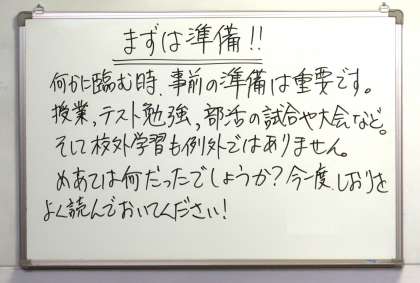 まずは準備!!
何かに臨む時、事前の準備は重要です。
授業,テスト勉強,部活の試合や大会など。
そして校外学習も例外ではありません。
めあては何だったでしょうか?今一度、しおりを
よく読んでおいてください!